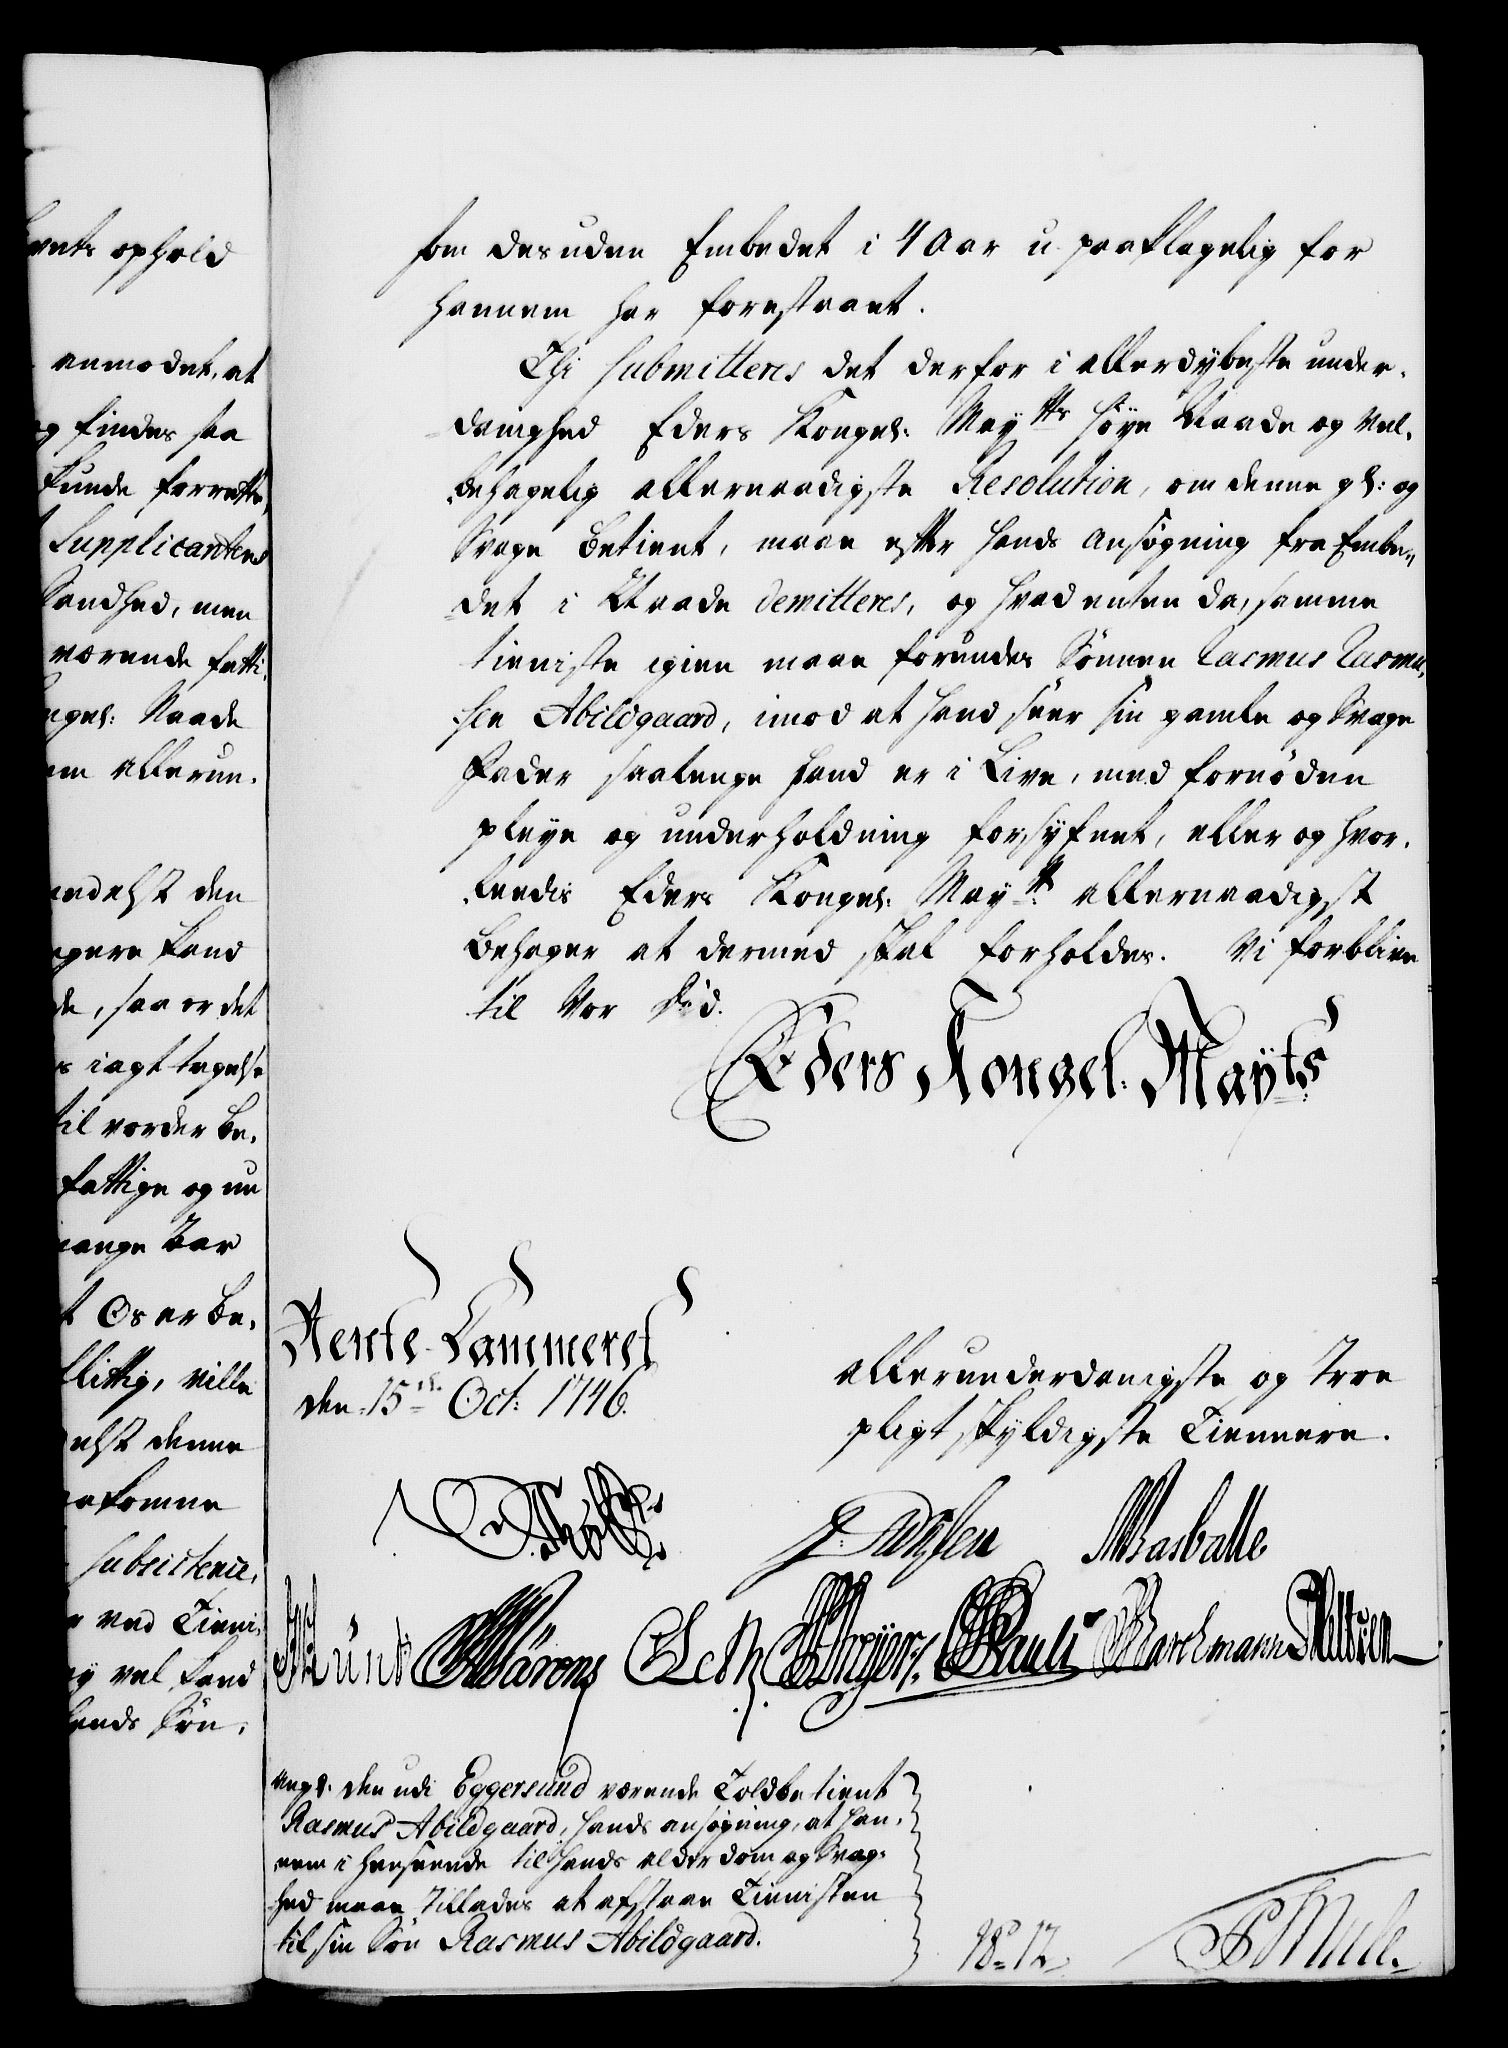 vets ophold
anmodet, at
og findes saa
kunde forrette,
Supplicantens
Sandhed, men
værende fatti,
ngel: Naade
em allerun,
andelst den
ngere kand
de, saa er det
s iagttagelse
til vorder be,
fattige og nu
mange Aar
t Os er be,
flittig, ville
delst denne
nkomne
Subsistence,
ved Tieni,
y vel kand
hands Søn,
som desuden Embedet i 4 Aar u-paaklagelig for
hannem har forestaaet.
Thi submitteres det derfor i allerdybeste under,
danighed Eders Kongel: Mayts høye Naade og Vel,
behagelig allernaadigste Resolution, om denne gl: og
Svage betient, maae efter hands Ansøgning fra Embe,,
det i Naade demitteres, og hvad enten da, samme
tieniste igien maae forundes Sønnen Rasmus Rasmu,
sen Abildgaard, imod at hand seer sin gamle og Svage
Fader saalenge hand er i Live, med fornøden
pleye og underholdning forsÿfnet, eller og hvor,
ledis Eders Kongel: Maytt allernaadigst
behager at dermed skal forholdes. Vi forblive
til Vor Død.
Eders Kongel: Maÿts
Rente-Cammeret
den 15de Oct: 1746.
allerunderdanigste og Troe
pligt skÿldigste Tiennere.
Masballe
Münk Wärens CLeth Meÿer Pauli Barchmann
angl: den udi Eggersund værende Toldbetient
Rasmus Abildgaard, hands ansøgning, at han,
nem i henseende til hands alderdom og Svag,
hed maae tillades at afstaae Tienisten
til sin Søn Rasmus Abildgaard.
No 12